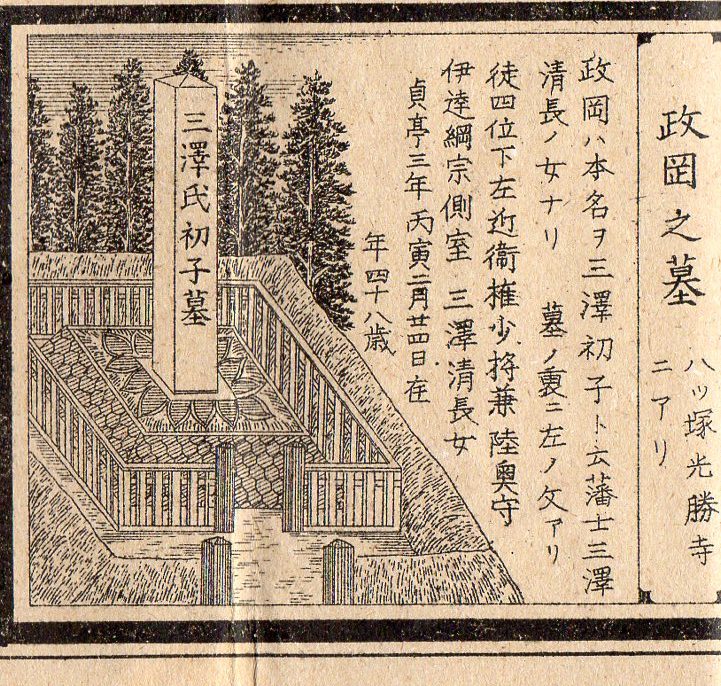 政岡之墓
八ッ塚光勝寺
ニアリ
政岡ハ本名ヲ三澤初子ト云藩士三澤
清長ノ女ナリ 墓ノ裏ニ左ノ文アリ
徒四位下左近衛権少将兼陸奥守
伊達綱宗側室 三澤清長女
貞享三年丙寅二月廿四日在
年四十八歳
三澤氏初子墓